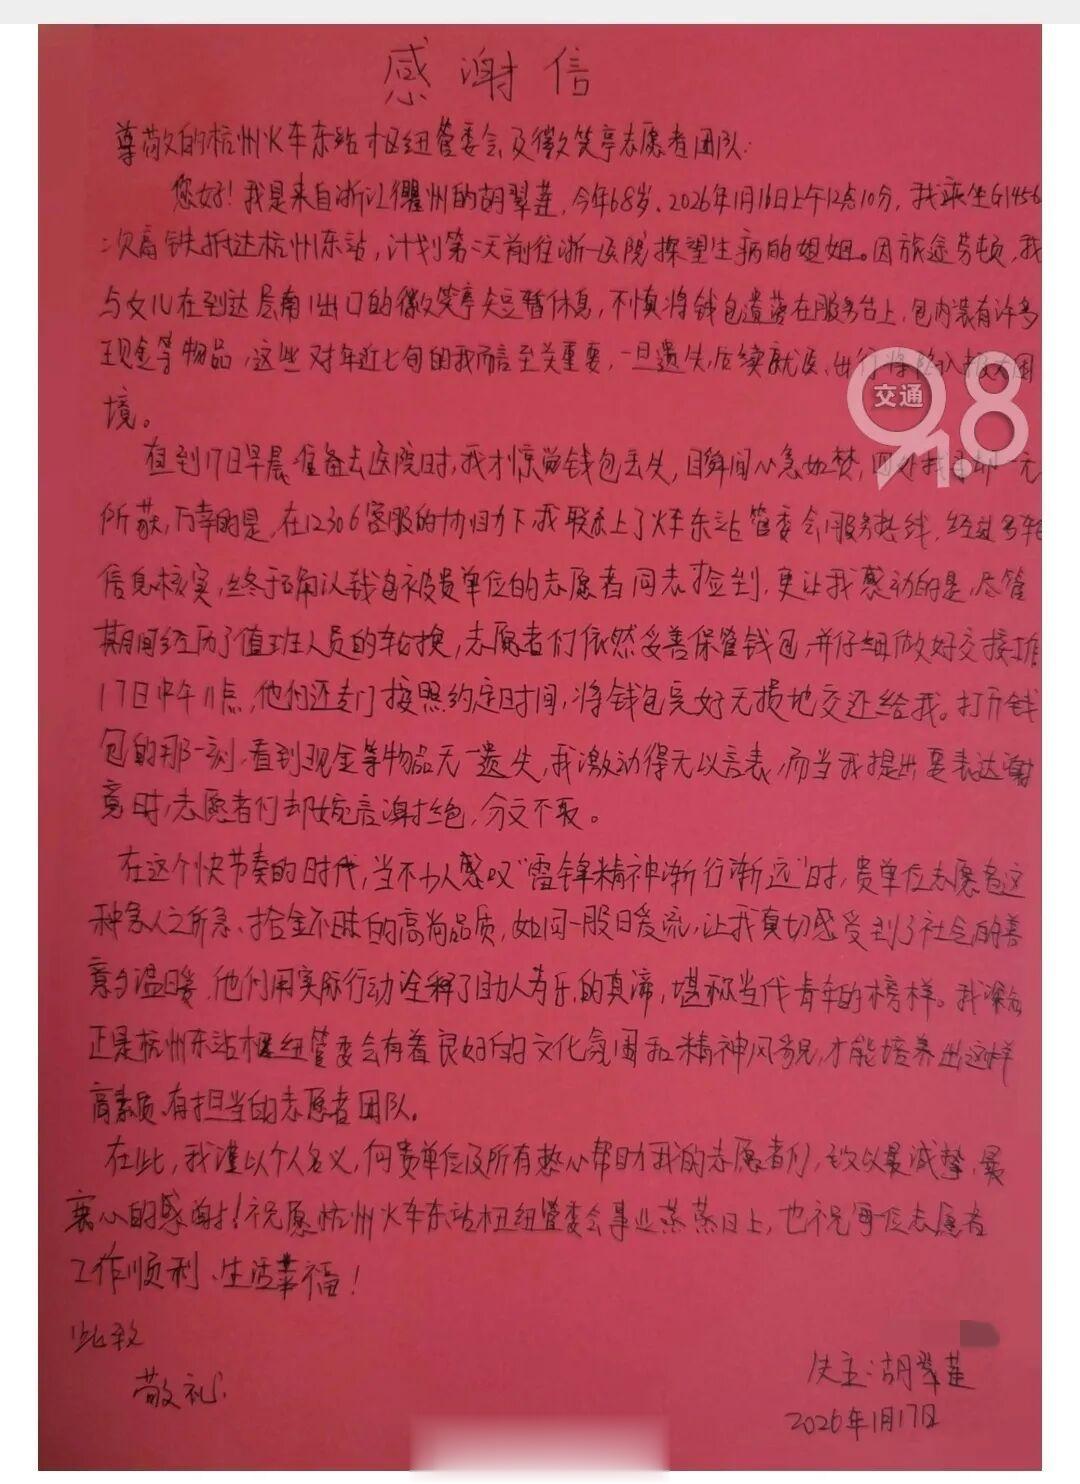 感谢信
尊敬的杭州火车东站枢纽管委会及微笑亭志愿者团队:
您好!我是来自浙江衢州的胡翠莲,今年68岁、2026年1月16日上午12点10分,我乘坐G1456
次高铁抵达杭州东站,计划第二天前往浙一医院探望生病的姐姐。因旅途劳顿,我
与女儿在到达层南1出口的微笑亭短暂休息,不慎将钱包遗落在服务台上,包内装有许多
现金等物品,这些对年近七旬的我而言至关重要,一旦遗失,后续就医、出行将陷入极大困
境。
直到17日早晨准备去医院时,我才惊觉钱包丢失,瞬间心急如焚,四处找寻却一无
所获,万幸的是,在12306客服的协助下,我联系上了火车东站管委会服务热线,经过多轮
信息核实,终于确认钱包被贵单位的志愿者同志捡到,更让我感动的是,尽管
期间经历了值班人员的轮换,志愿者们依然妥善保管钱包,并仔细做好交接工作
17日中午11点,他们还专门按照约定时间,将钱包完好无损地交还给我。打开钱
包的那一刻,看到现金等物品无一遗失,我激动得无以言表,而当我提出要表达谢
意时,志愿者们却婉言谢绝,分文不取。
在这个快节奏的时代,当不少人感叹"雷锋精神渐行渐远"时,贵单位志愿者这
种急人之所急、拾金不昧的高尚品质,如同一股暖流,让我真切感受到了社会的善
意与温暖,他们用实际行动诠释了助人为乐的真谛,堪称当代青年的榜样。我深知
正是杭州东站枢纽管委会有着良好的文化氛围和精神风貌,才能培养出这样
高素质、有担当的志愿者团队。
在此,我谨以个人名义,向贵单位及所有热心帮助我的志愿者们,致以最诚挚、最
衷心的感谢!祝愿杭州火车东站枢纽管委会事业蒸蒸日上,也祝每位志愿者
工作顺利、生活幸福!
此致
敬礼
失主:胡翠莲
2026年1月17日
交通
918